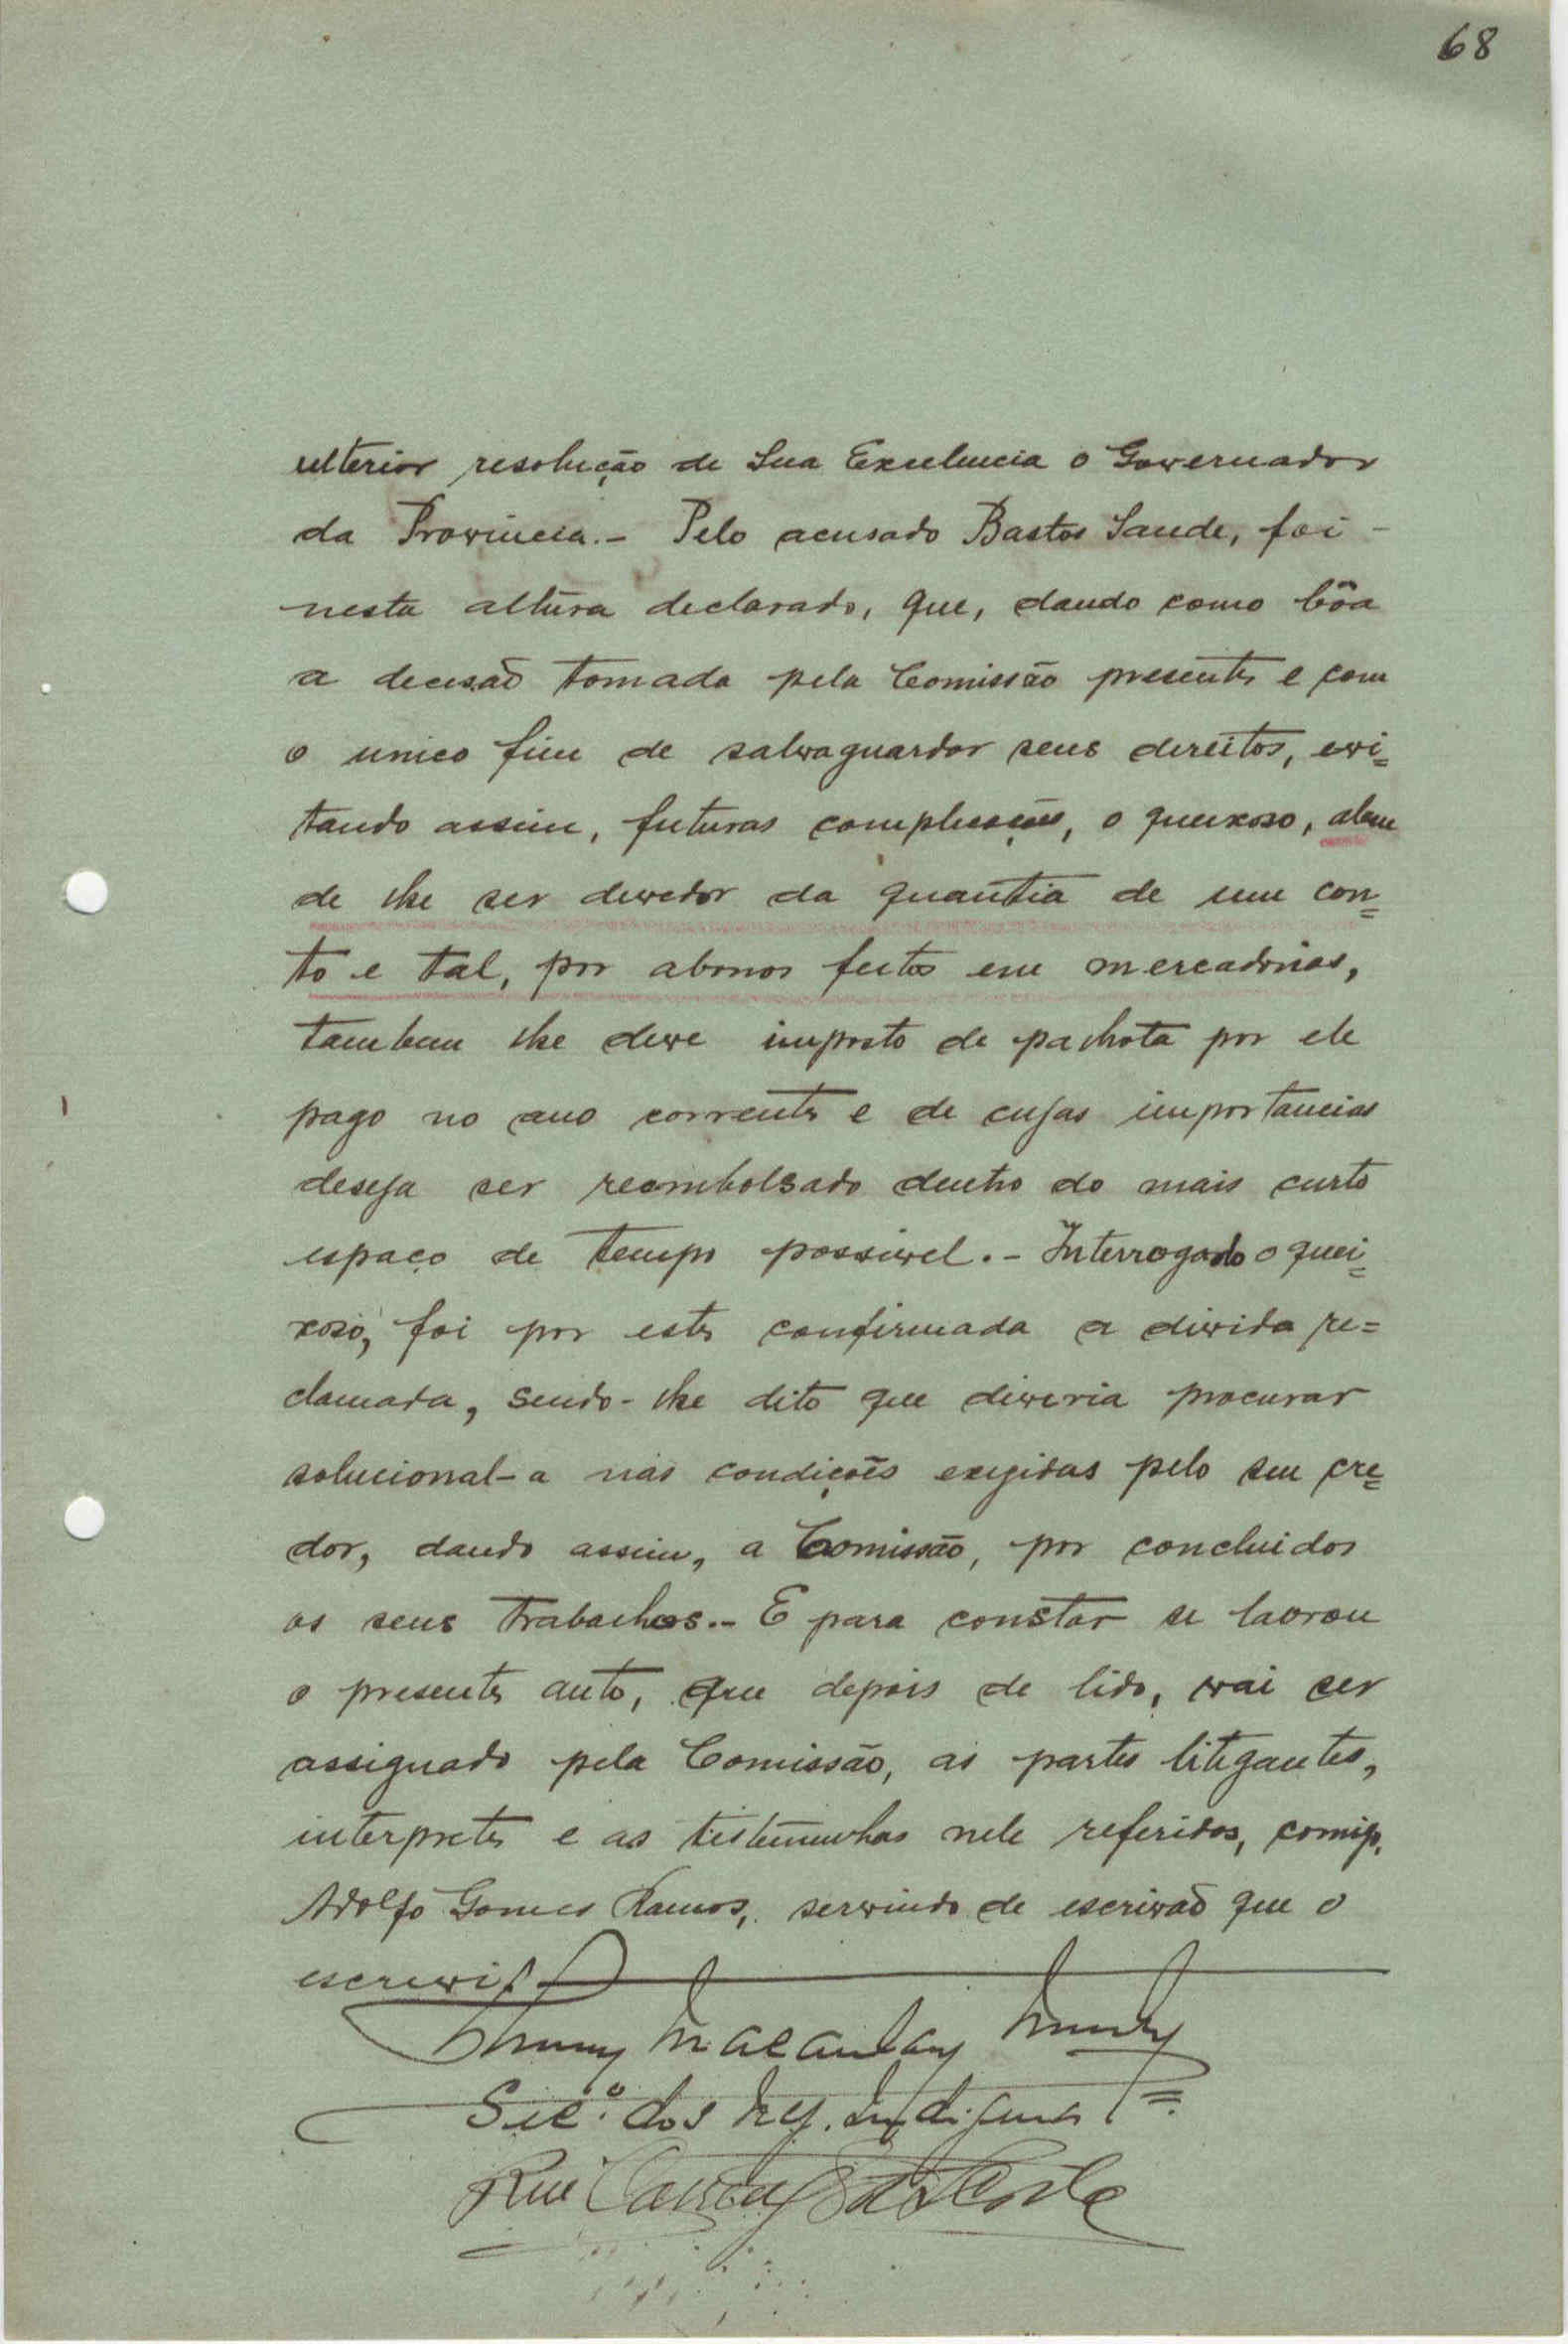 68
ulterior resolução de Sua Excelencia o Governador
da Provincia.- Pelo acusado Bastos Saude, foi -
nesta altura declarado, que, dando como bôa
a decisão tomada pela Comissão presente e com
o unico fim de salvaguardar seus direitos, evi=
tando assim, futuras complicações, o queixoso, alem
de lhe ser devedor da quantia de um con=
to e tal, por abonos feitos em mercadorias,
tambem lhe deve imposto de palhota por ele
pago no ano corrente e de cujas importancias
deseja ser reembolsado dentro do mais curto
espaço de tempo possivel.- Interrogado o quei=
xoso, foi por este confirmada a divida re=
clamada, sendo-lhe dito que deveria procurar
solucional-a nas condições exigidas pelo seu cre=
dor, dando assim, a Comissão, por concluidos
os seus trabalhos.- E para constar se lavrou
o presente auto, que depois de lido, vai ser
assignado pela Comissão, as partes litigantes,
interprete e as testemunhas nele referidos, comigo,
Adolfo Gomes Ramos, servindo de escrivão que o
escrevi
Macaulay
Sec.º dos Neg. Indigenas
Rui